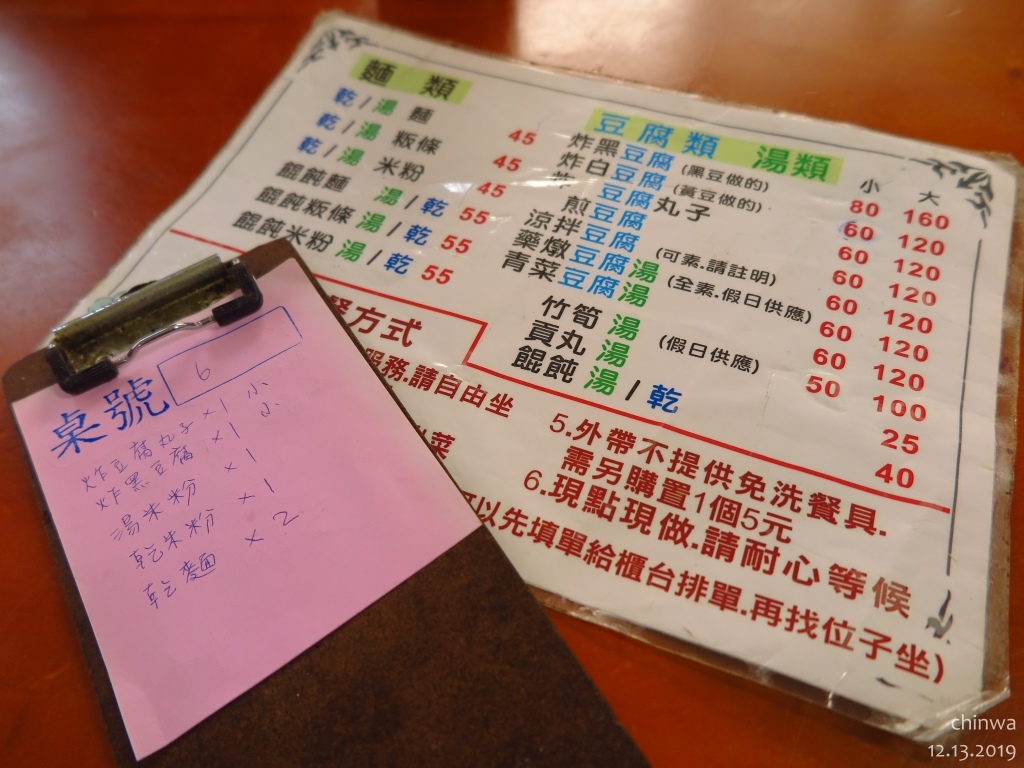 麵 類
乾/湯 麵 45
乾/湯 粄條 45
乾/湯 米粉 45
餛飩麵 湯/乾 55
餛飩粄條 湯/乾 55
餛飩米粉 湯/乾 55
豆腐類 湯類
炸黑豆腐 (黑豆做的)
炸白豆腐 (黃豆做的)
豆腐丸子
煎豆腐
涼拌豆腐
藥燉豆腐湯 (可素.請註明)
青菜豆腐湯 (全素.假日供應)
竹筍湯 (假日供應)
貢丸湯
餛飩湯/乾
小 大
80 160
60 120
60 120
60 120
60 120
60 120
50 100
25
40
方式
服務.請自由坐
菜
以先填單給櫃台排單.再找位子坐)
5.外帶不提供免洗餐具.
需另購置1個5元
6.現點現做.請耐心等候
桌號 6
炸豆腐丸子 x1 小
炸黑豆腐 x1 小
湯米粉 x1
乾米粉 x1
乾麵 x2
chinwa
12.13.2019